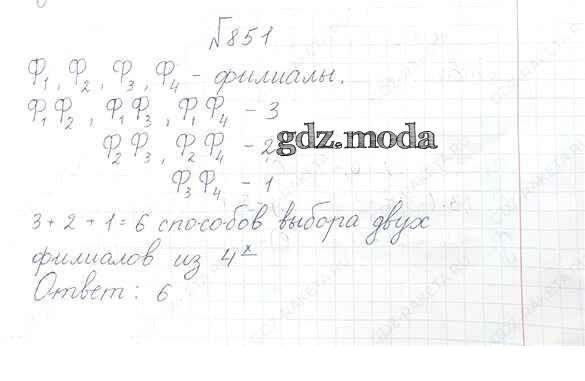 №851
Ф₁, Ф₂, Ф₃, Ф₄ - филиалы.
Ф₁Ф₂, Ф₁Ф₃, Ф₁Ф₄ - 3
Ф₂Ф₃, Ф₂Ф₄ - 2
gdz.moda
Ф₃Ф₄ - 1
3+2+1=6 способов выбора двух
филиалов из 4ˣ
Ответ: 6